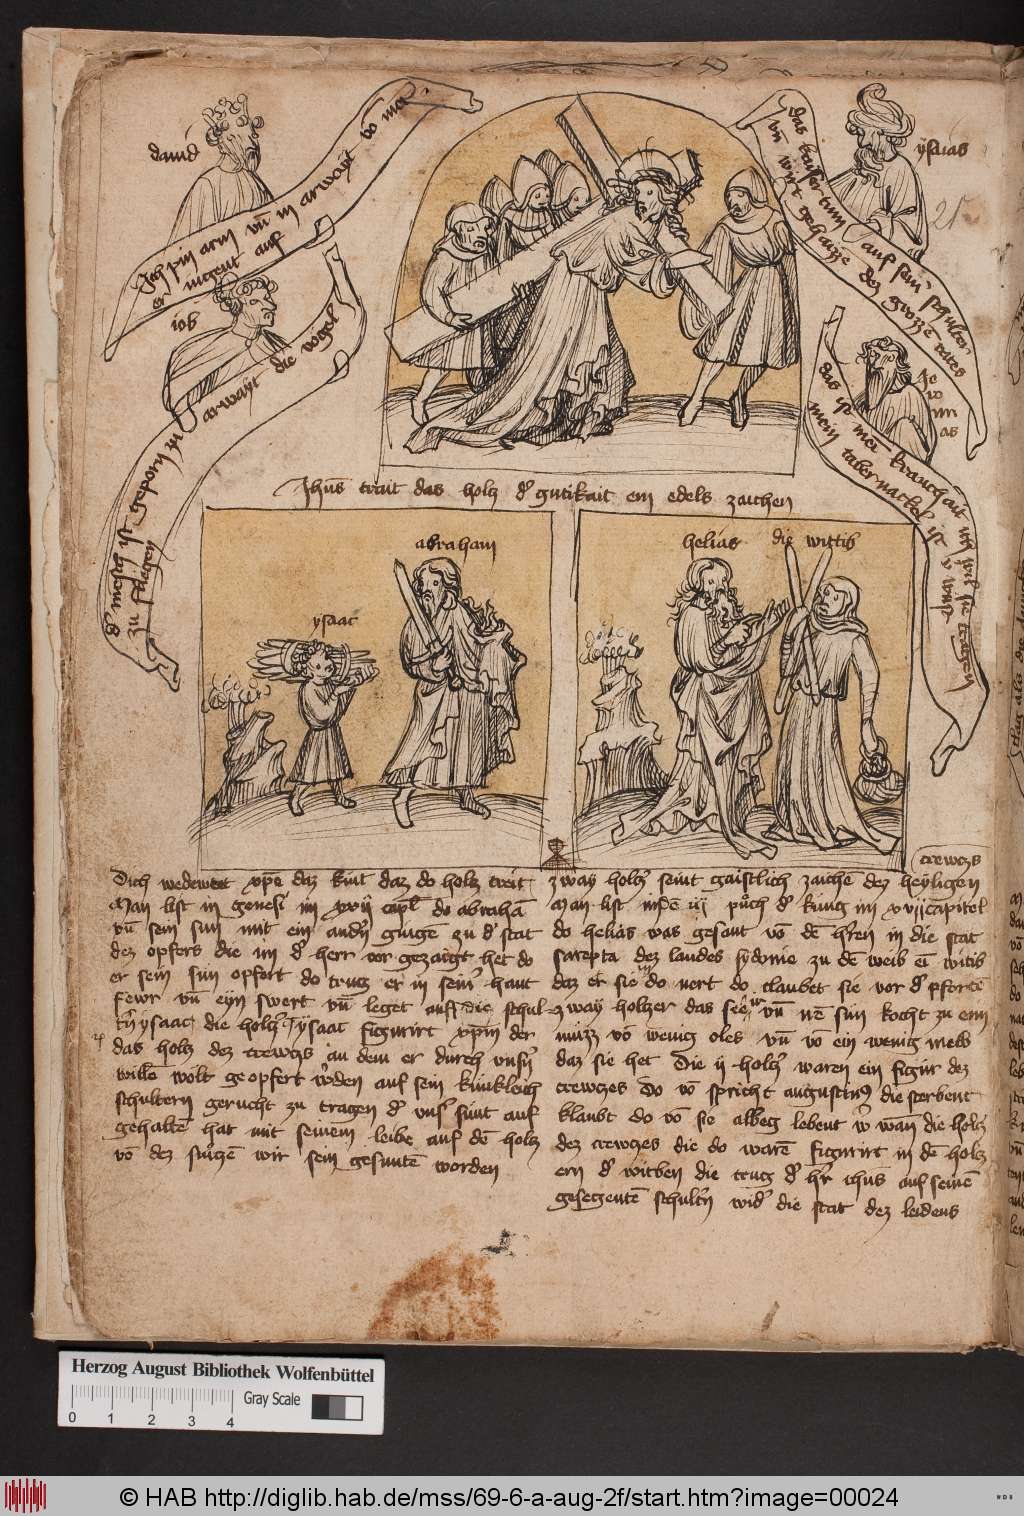 dauid
Jch pin arm vn̄ in arwaÿt vō mei
er iugent auf
iob
d' mēsch ist geporn zu arwaÿt die vogel
zu fliegen
ysaias
das kaisertum auf sein' schulter
vn̄ wirt gehaizze dez grozze rates
Je
re
mi
as
das ist mei kranchait vn̄ ich wil sie tragen
mein tabernackel ist v'wüst
Jhūs trait das holz d' gutikait ein edels zaichen
abraham
ysaac
helias die wittib
Dich bedewtet xpē daz kint daz do holz treit
Man list in genesi im xxij capl' do abrahā
vn̄ sein sun mit ein and'n gingē zu d' stat
dez opfers die im d' herr vor gezaigt het do
er sein sun opfert do trug er in sein' hant
fewr vn̄ eyn swert vn̄ leget auff die schul
t'n ysaac die holz' ysaac figurirt xp̄m der
das holz dez crewczs an dem er durch vnsn̄
willē wolt geopfert w'den auf sein künkleich
schultern gerucht zu tragen d' vns' sünt auf
gehaltē hat mit seinem leibe auf dē holz
vō dez slügē wir sein gesuntē worden
crewczs
zway holz' seint gaistlich zaichē dez heyligen
Man list in dē iij pūch d' kunig im xvij capitel
do helias was gesant vō dē h'ren in die stat
sarepta dez landes sydonie zu dē weib ein witib
daz er sie do nert do claubet sie vor d' pfortē
zway holzer das sie ir vn̄ irē sun kocht zu eim
müzz vō wenig oles vn̄ vō ein wenig melb
daz sie het Die ij holz' waren ein figur dez
crewczes Do vō spricht augustin9 die sterbent
klaubt do vō sie albeg lebent w' wan die holz'
dez crewczes die do warē figurirt in dē holz
ern d' witben die trug d' h'r ihūs auf seinē
gesegentē schult'n wid' die stat dez leidens
Herzog August Bibliothek Wolfenbüttel
Gray Scale
0 1 2 3 4
© HAB http://diglib.hab.de/mss/69-6-a-aug-2f/start.htm?image=00024